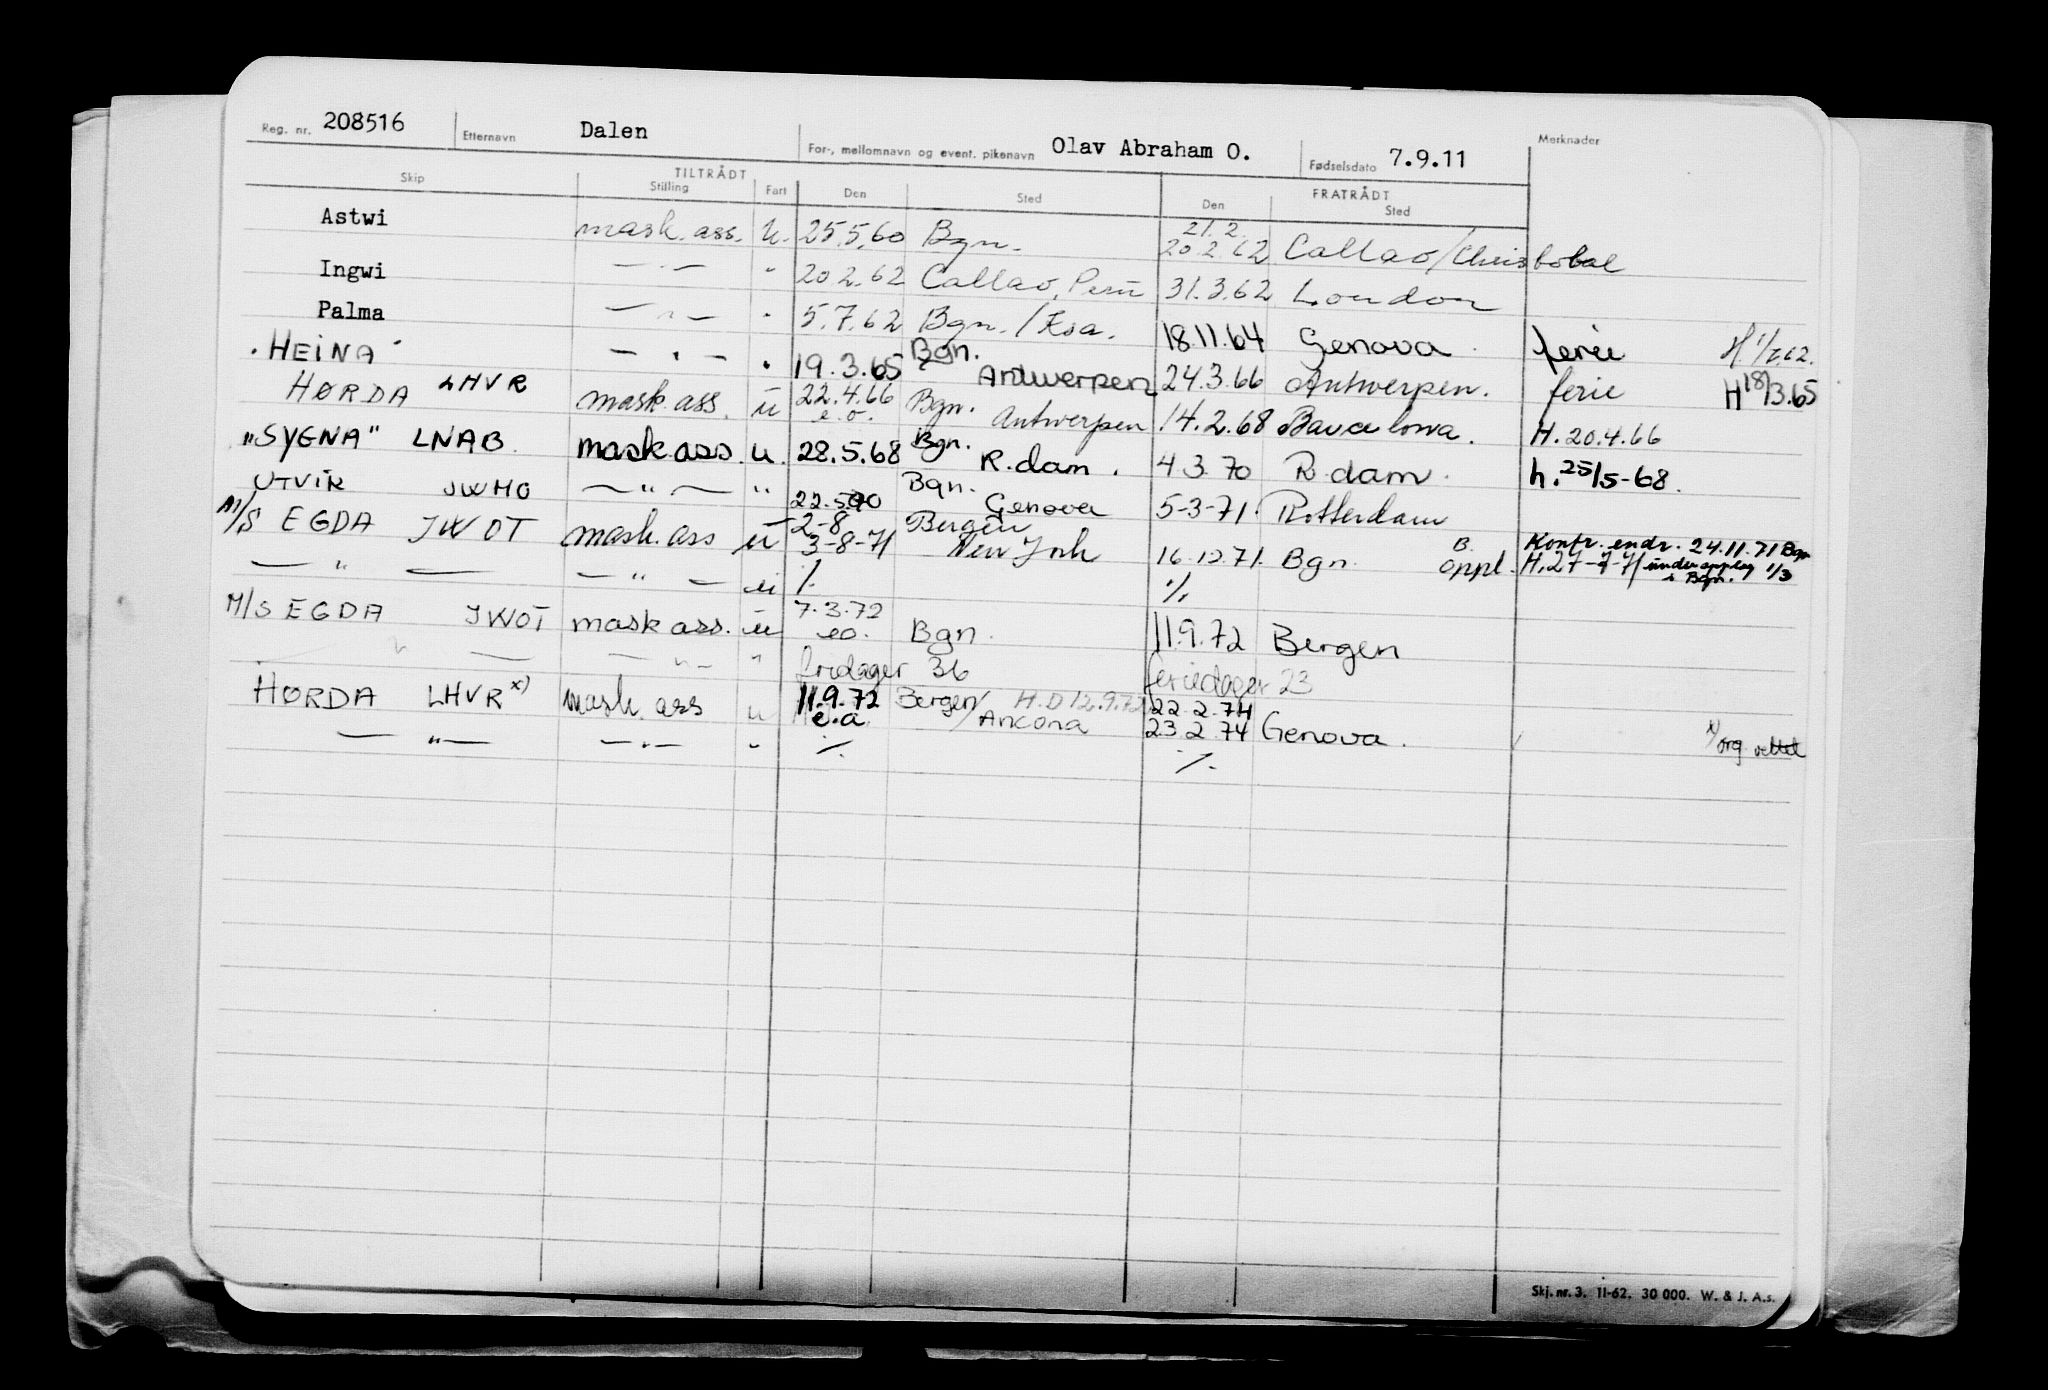 Reg. nr. 208516 Etternavn Dalen For-, mellomnavn og event. pikenavn Olav Abraham O. Fødselsdato 7.9.11 Merknader
TILTRÅDT FRATRÅDT
Skip Stilling Fart Den Sted Den Sted
Astwi mask. ass. u. 25.5.60 Bgn. 21.2. 20.2.62 Callao/Christobal
Ingwi — " — " 20.2.62 Callao, Peru 31.3.62 London
Palma — " — " 5.7.62 Bgn. / Ksa. 18.11.64 Genova ferie H 1/7.62.
"HEINA" — " — " 19.3.65 Bgn. Antwerpen 24.3.66 Antwerpen. ferie H 18/3.65
HØRDA LHVR mask. ass. u 22.4.66 e.o. Bgn. Antwerpen 14.2.68 Barcelona. H. 20.4.66
"SYGNA" LNAB. mask ass. u. 28.5.68 Bgn. R.dam. 4.3.70 R.dam. h. 25/5-68.
UTVIK JWHO — " — " 22.5.70 Bgn. Genova 5-3-71. Rotterdam
M/S EGDA JWOT mask. ass u 2-8 3-8-71 Bergen New York 16.12.71. Bgn. B. oppl. Kontr. endr. 24.11.71 Bgn H. 27-7-71 under opplag 1/3 i Bgn.
— " — — " — u % %
M/S EGDA JWOT mask ass. u 7.3.72 eo. Bgn. 11.9.72 Bergen
— " — — " — " fridager 36 feriedager 23
HØRDA LHVR x) mask. ass u 11.9.72 e.a. Bergen/ Ancona H.D 12.9.72 22.2.74 23.2.74 Genova.
— " — — " — " % % x) org. vettet
Skj. nr. 3. 11-62. 30 000. W. & J. A.s.